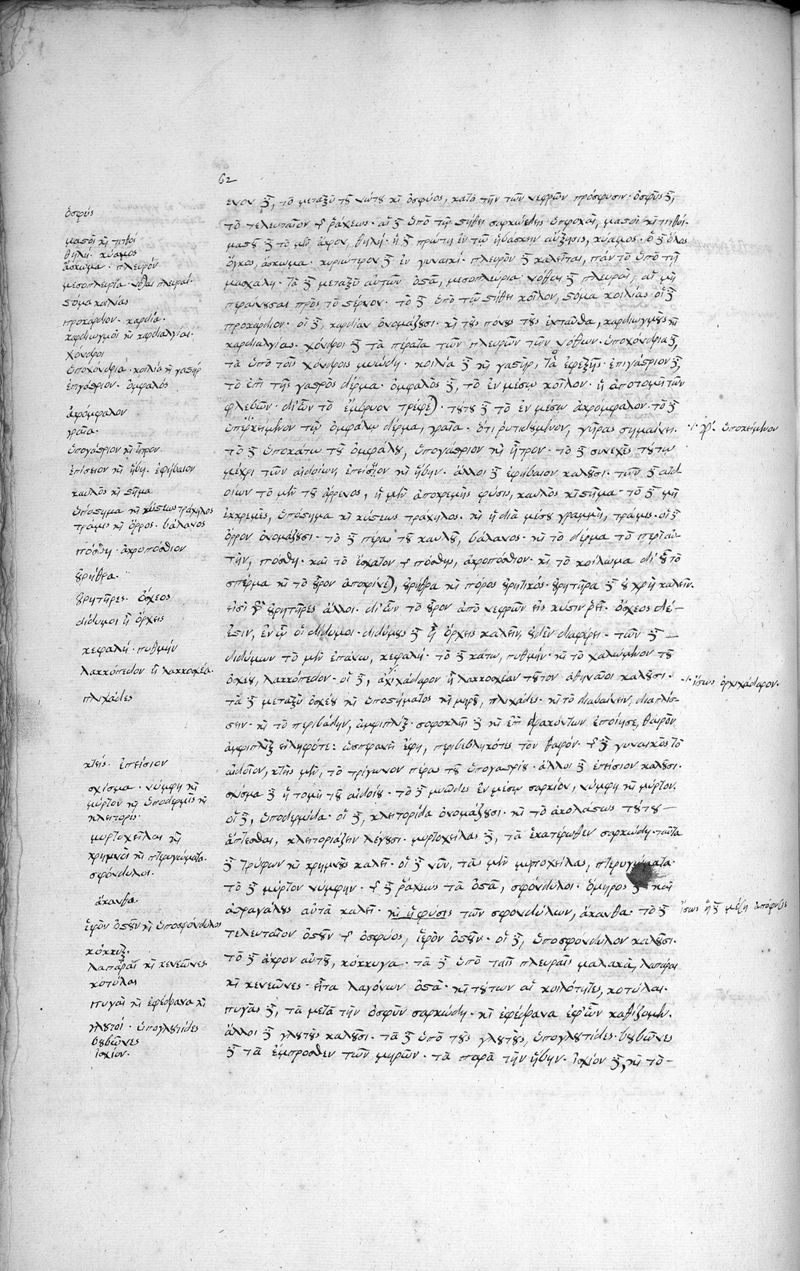 62
ὀσφύς
μασοὶ καὶ τιτθοί
θηλή. κύαμος
ἄσκωμα. πλευρόν
μεσοπλεύρια. νόθαι πλευραί.
στόμα κοιλίας
προκάρδιον. καρδία.
καρδιωγμοὶ καὶ καρδιαλγίαι.
χόνδροι
ὑποχόνδρια. κοιλία καὶ γαστήρ
ἐπιγάστριον. ὀμφαλός
ἀκρόμφαλον
γραῖα.
ὑπογάστριον καὶ ἦτρον.
ἐπίσειον καὶ ἥβη. ἐφήβαιον
καυλὸς καὶ στῆμα
ὑπόστημα καὶ κύστεως τράχηλος
τράμις καὶ ὄρρος. βάλανος
πόσθη. ἀκροπόσθιον
οὐρήθρα.
οὐρητῆρες. ὄσχεος
δίδυμοι ἢ ὄρχεις
κεφαλή. πυθμήν
λακκόπεδον ἢ λακκοσχέα.
πλιχάδες
κτείς. ἐπείσιον
σχίσμα. νύμφη καὶ
μύρτον καὶ ὑποδερμὶς καὶ
κλειτορίς.
μυρτοχεῖλαι καὶ
κρημνοὶ καὶ πτερυγώματα.
σφόνδυλοι.
ἄκανθα.
ἱερὸν ὀστοῦν καὶ ὑποσφόνδυλον
κόκκυξ.
λαπάραι καὶ κενεῶνες
κοτύλαι
πυγαὶ καὶ ἐφέδρανα καὶ
γλουτοί. ὑπογλουτίδες
βουβῶνες
ἰσχίον.
ενον δὲ, τὸ μεταξὺ τοῦ νώτου καὶ ὀσφύος, κατὰ τὴν τῶν νεφρῶν πρόσφυσιν. ὀσφὺς δὲ,
τὸ τελευταῖον τῆς ῥάχεως. αἱ δὲ ὑπὸ τοῖς στήθεσι σαρκώδεις ὑπεροχαὶ, μασοὶ καὶ τιτθοί.
μασοῦ δὲ τὸ μὲν ἄκρον, θηλή. ἡ δὲ πρώτη ἐν τῷ ἡβάσκειν αὔξησις, κύαμος. ὁ δὲ ὅλος
ὄγκος, ἄσκωμα. κυριώτερον δὲ ἐν γυναικί. πλευρὸν δὲ καλεῖται, πᾶν τὸ ὑπὸ τῇ
μασχάλῃ. τὰ δὲ μεταξὺ αὐτῶν ὀστᾶ, μεσοπλεύρια. νόθαι δὲ πλευραὶ, αἱ μὴ
περαίνουσαι πρὸς τὸ στέρνον. τὸ δὲ ὑπὸ τῷ στήθει κοῖλον, στόμα κοιλίας. οἱ δὲ
προκάρδιον. οἱ δὲ, καρδίαν ὀνομάζουσι. καὶ τοὺς πόνους τοὺς ἐνταῦθα, καρδιωγμοὺς καὶ
καρδιαλγίας. χόνδροι δὲ τὰ πέρατα τῶν πλευρῶν τῶν νόθων. ὑποχόνδρια δὲ,
τὰ ὑπὸ τοῖς χόνδροις μυώδη. κοιλία δὲ καὶ γαστὴρ, τὰ ἐφεξῆς. ἐπιγάστριον δὲ,
τὸ ἐπὶ τῆς γαστρὸς δέρμα. ὀμφαλὸς δὲ, τὸ ἐν μέσῳ κοῖλον. ἡ ἀποτομὴ τῶν
φλεβῶν. δι' ὧν τὸ ἔμβρυον τρέφεται. τούτου δὲ τὸ ἐν μέσῳ ἀκρόμφαλον. τὸ δὲ
ὑπερκείμενον τῷ ὀμφαλῷ δέρμα, γραῖα. ὅτι ῥυτιδούμενον, γῆρας σημαίνει.
τὸ δὲ ὑποκάτω τοῦ ὀμφαλοῦ, ὑπογάστριον καὶ ἦτρον. τὸ δὲ συνεχὲς τούτῳ
μέχρι τῶν αἰδοίων, ἐπείσιον καὶ ἥβην. ἄλλοι δὲ ἐφήβαιον καλοῦσι. τῶν δὲ αἰδ
οίων τὸ μὲν τοῦ ἄρρενος, ἡ μὲν ἀποκρεμὴς φύσις, καυλὸς καὶ στῆμα. τὸ δὲ μὴ
ἐκκρεμὲς, ὑπόστημα καὶ κύστεως τράχηλος. καὶ ἡ διὰ μέσου γραμμὴ, τράμις. οἱ δὲ
ὄρρον ὀνομάζουσι. τὸ δὲ πέρας τοῦ καυλοῦ, βάλανος. καὶ τὸ δέρμα τὸ περὶ αὐ-
τὴν, πόσθη. καὶ τὸ ἔσχατον τῆς πόσθης, ἀκροπόσθιον. καὶ τὸ κοίλωμα δι' οὗ τὸ
σπέρμα καὶ τὸ οὖρον ἀποκρίνεται, οὐρήθρα καὶ πόρος οὐρητικός. οὐρητῆρα δὲ οὐ χρὴ καλεῖν.
εἰσὶ γὰρ οὐρητῆρες ἄλλοι. δι' ὧν τὸ οὖρον ἀπὸ νεφρῶν εἰς κύστιν ῥεῖ. ὄσχεος δέ-
ἐστιν, ἐν ᾧ οἱ δίδυμοι. διδύμους δὲ ἢ ὄρχεις καλεῖν, οὐδὲν διαφέρει. τῶν δὲ
διδύμων τὸ μὲν ἐπάνω, κεφαλή. τὸ δὲ κάτω, πυθμήν. καὶ τὸ χαλώμενον τοῦ
ὀσχέου, λακκόπεδον. οἱ δὲ, ἀχιχάδαρον ἢ λακκοσχέαν τοῦτον ἀθηναῖοι καλοῦσι.
τὰ δὲ μεταξὺ ὀσχέου καὶ ὑποστήματος καὶ μηροῦ, πλιχάδες. καὶ τὸ διαβαίνειν, διαπλίσ-
σειν. καὶ τὸ περιβάδην, ἀμφιπλίξ. σοφοκλῆς δὲ καὶ ἐπὶ δρακόντων ἐποίησε, θαιρὸν
ἀμφιπλὶξ εἰληφότε. ὡσπερανεὶ ἔφη, περιβεβληκότες τὸν θαιρόν. τῆς δὲ γυναικὸς τὸ
αἰδοῖον, κτεὶς μὲν, τὸ τρίγωνον πέρας τοῦ ὑπογαστρίου. ἄλλοι δὲ ἐπείσιον καλοῦσι.
σχίσμα δὲ ἡ τομὴ τοῦ αἰδοίου. τὸ δὲ μυῶδες ἐν μέσῳ σαρκίον, νύμφη καὶ μύρτον.
οἱ δὲ, ὑποδερμίδα. οἱ δὲ, κλειτορίδα ὀνομάζουσι. καὶ τὸ ἀκολάστως τούτου
ἅπτεσθαι, κλειτοριάζειν λέγουσι. μυρτοχεῖλας δὲ, τὰ ἑκατέρωθεν σαρκώδη. ταῦτα
δὲ Εὐρυφῶν καὶ κρημνοὺς καλεῖ. οἱ δὲ νῦν, τὰς μὲν μυρτοχείλας, πτερυγώματα.
τὸ δὲ μύρτον νύμφην. τῆς δὲ ῥάχεως τὰ ὀστᾶ, σφόνδυλοι. ὅμηρος δὲ καὶ
ἀστραγάλους αὐτὰ καλεῖ. καὶ ἡ φύσις τῶν σφονδύλων, ἄκανθα. τὸ δὲ
τελευταῖον ὀστοῦν τῆς ὀσφύος, ἱερὸν ὀστοῦν. οἱ δὲ, ὑποσφόνδυλον καλοῦσι.
τὸ δὲ ἄκρον αὐτοῦ, κόκκυγα. τὰ δὲ ὑπὸ ταῖς πλευραῖς μαλακὰ, λαπάραι
καὶ κενεῶνες. εἶτα λαγόνων ὀστᾶ. καὶ τούτων αἱ κοιλότητες, κοτύλαι.
πυγὰς δὲ, τὰ μετὰ τὴν ὀσφὺν σαρκώδη. καὶ ἐφέδρανα ἐφ' ὧν καθίζομεν.
ἄλλοι δὲ γλουτοὺς καλοῦσι. τὰ δὲ ὑπὸ τοὺς γλουτοὺς, ὑπογλουτίδες. βουβῶνες
δὲ τὰ ἔμπροσθεν τῶν μηρῶν. τὰ παρὰ τὴν ἥβην. ἰσχίον δὲ, καὶ τὸ
γρ. ὑποκείμενον
ἴσως ἀρχιχάδαρον.
ἴσως ἡ δὲ μέση ἀπόφυσις